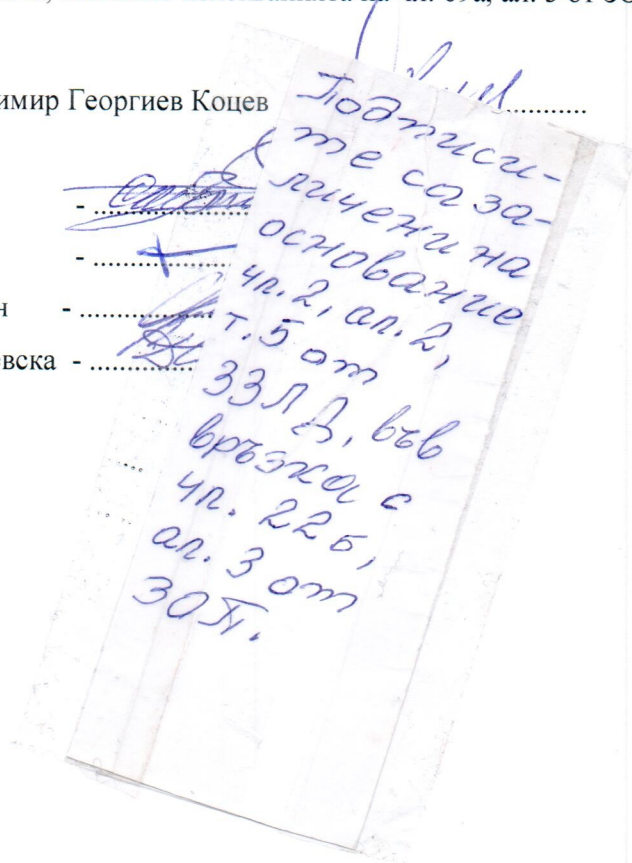 имир Георгиев Коцев ............
- ..................
- ..................
н - ..................
евска - ..................
Подписи-
те са за-
личени на
основание
чл.2, ал.2,
т.5 от
ЗЗЛД, във
връзка с
чл. 22б,
ал. 3 от
ЗОП.